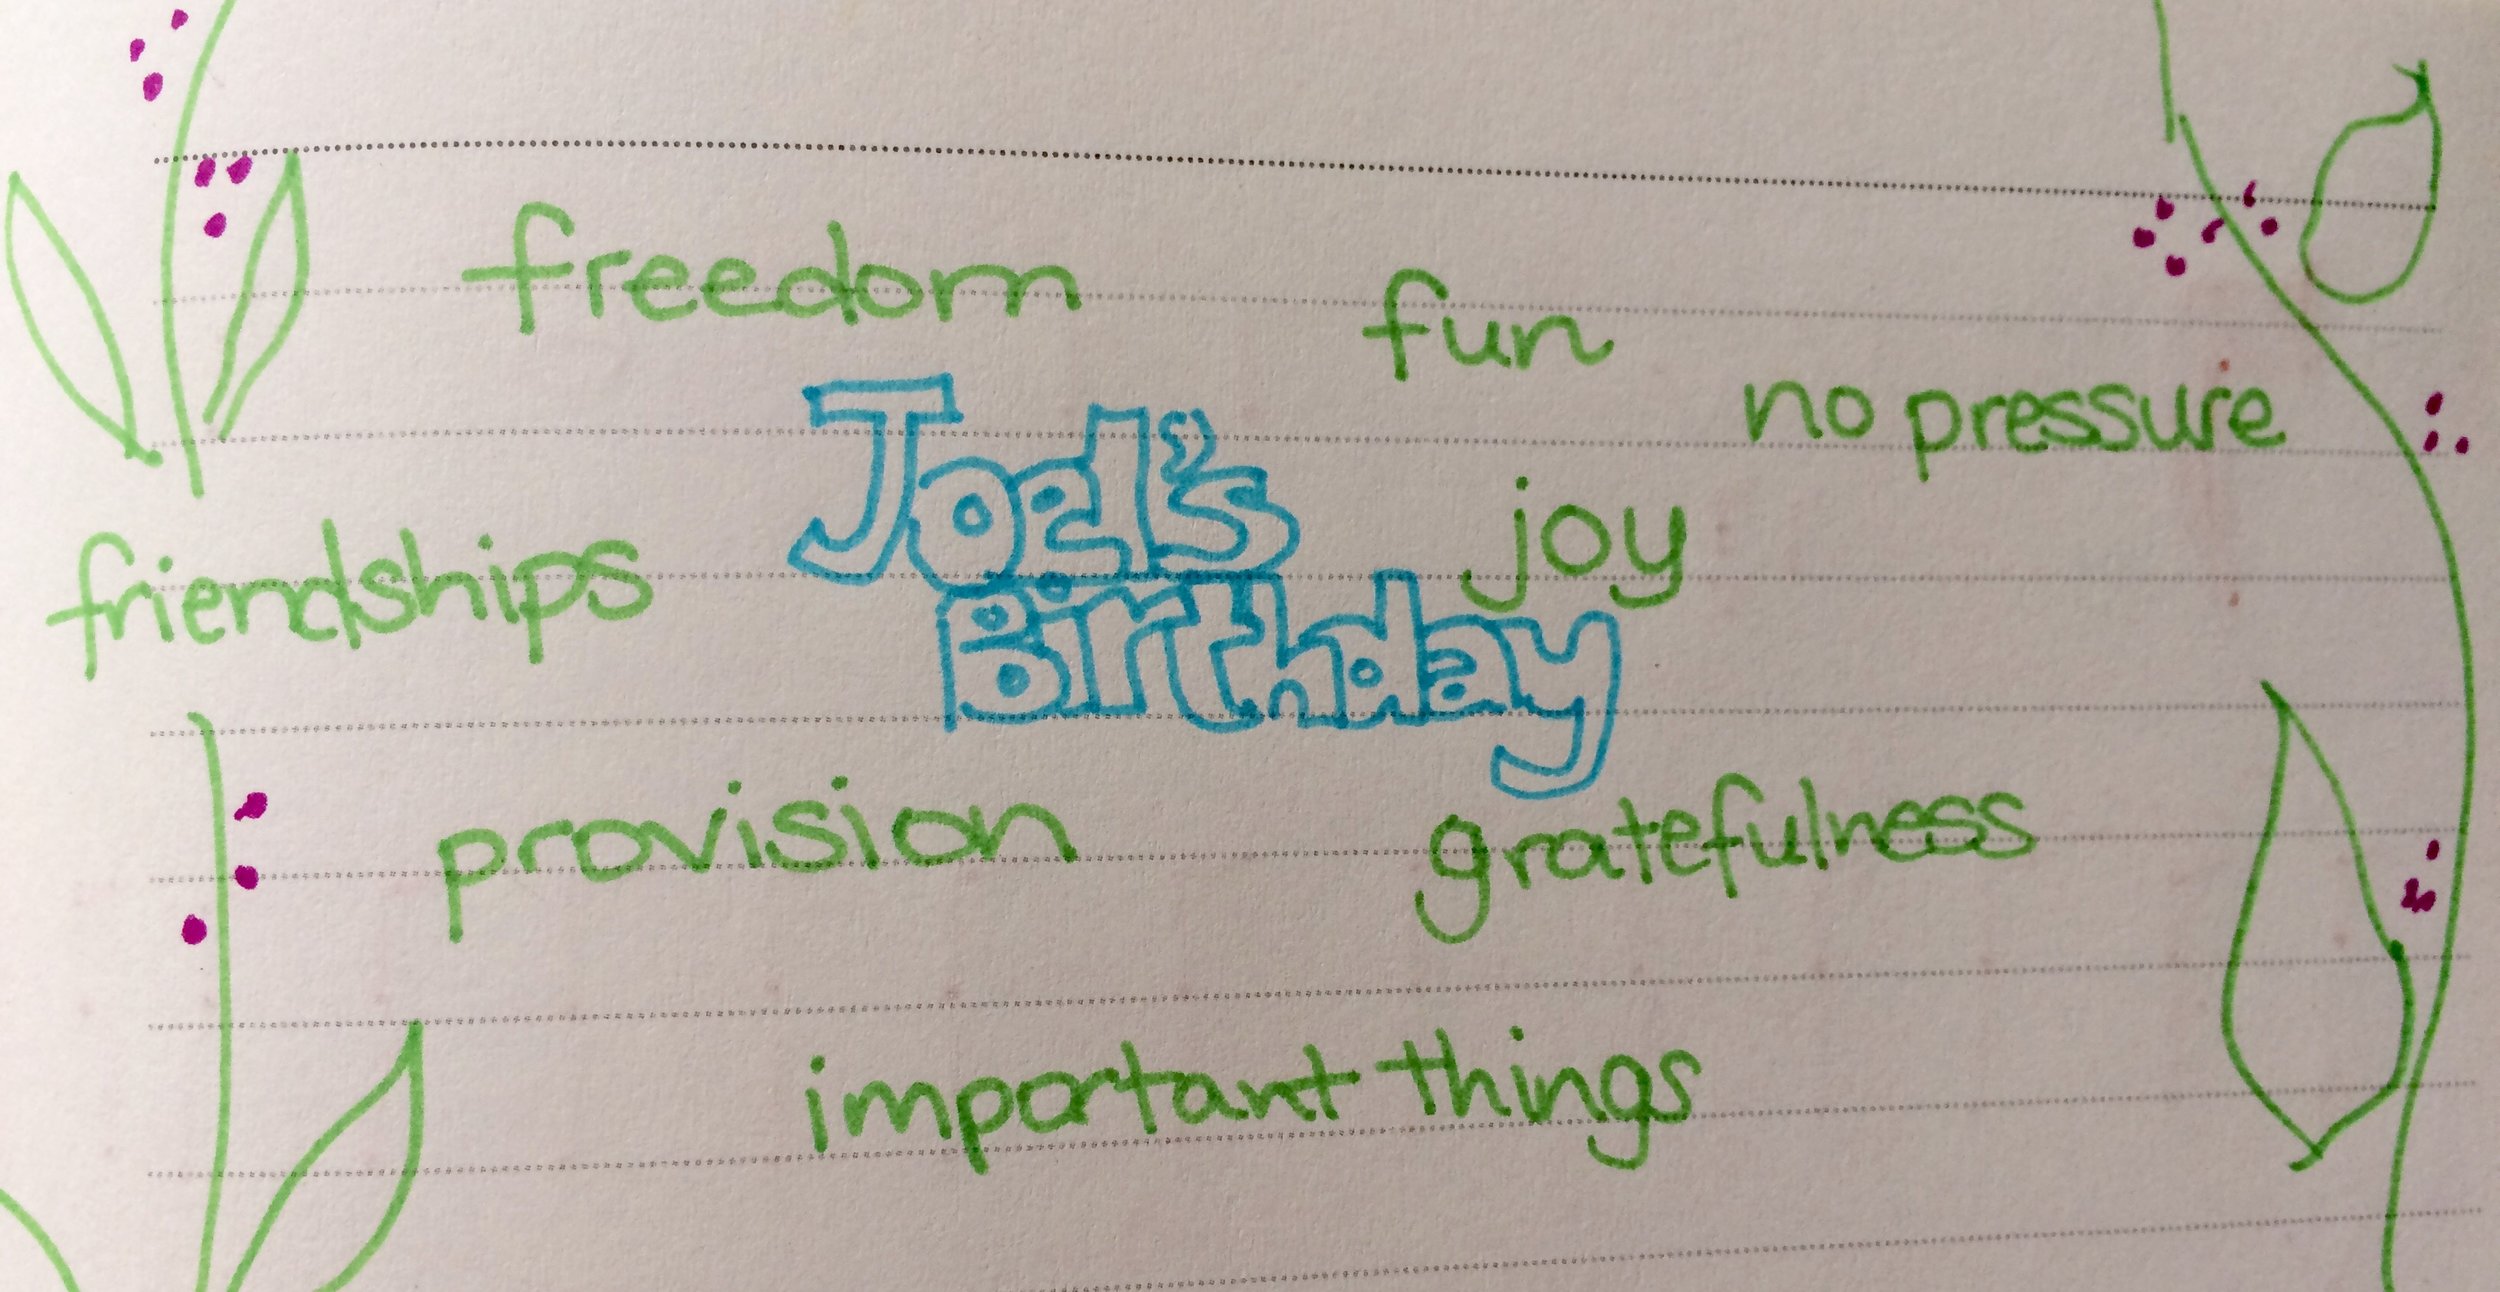 freedom
fun
no pressure
Joel's
joy
friendships
Birthday
provision
gratefulness
important things